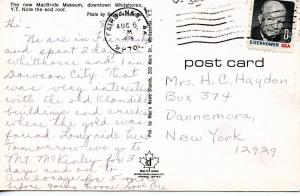 The new MacBride Museum, downtown Whitehorse,
Y.T. Note the sod roof.
Photo by
FAIRBANKS
AUG 6
PM
Hi
We are in
and spent 2 days
Whitehorse and 1 in
Dawson City. That
was very interesting
with the old Klondike
buildings and creeks
where the gold was
found. Long ride here
Tomorrow we go to
Mt. McKinley for 3
days and not to
Anchorage for 5 more
before going home. Love
EISENHOWER USA
post card
Mrs. H. C. Haydon
Box 374
Dannemora,
New York
12929